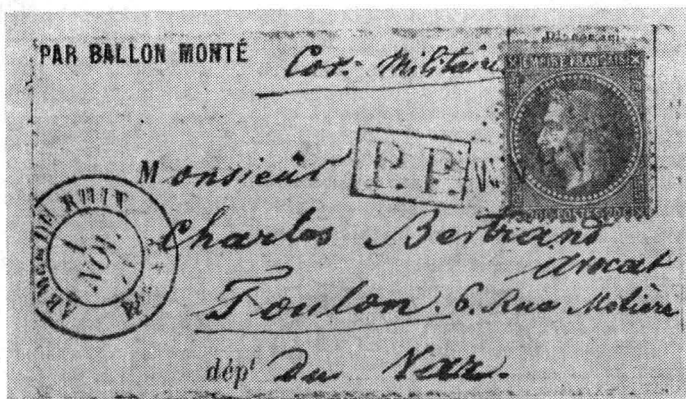 PAR BALLON MONTÉ
Cor. Militaire
EMPIRE FRANÇAIS
P.P.
Monsieur
ARMÉE DU RHIN
1
NOV.
Charles Bertrand
Avocat
Toulon. 6. Rue Molière
dépt Du Var.